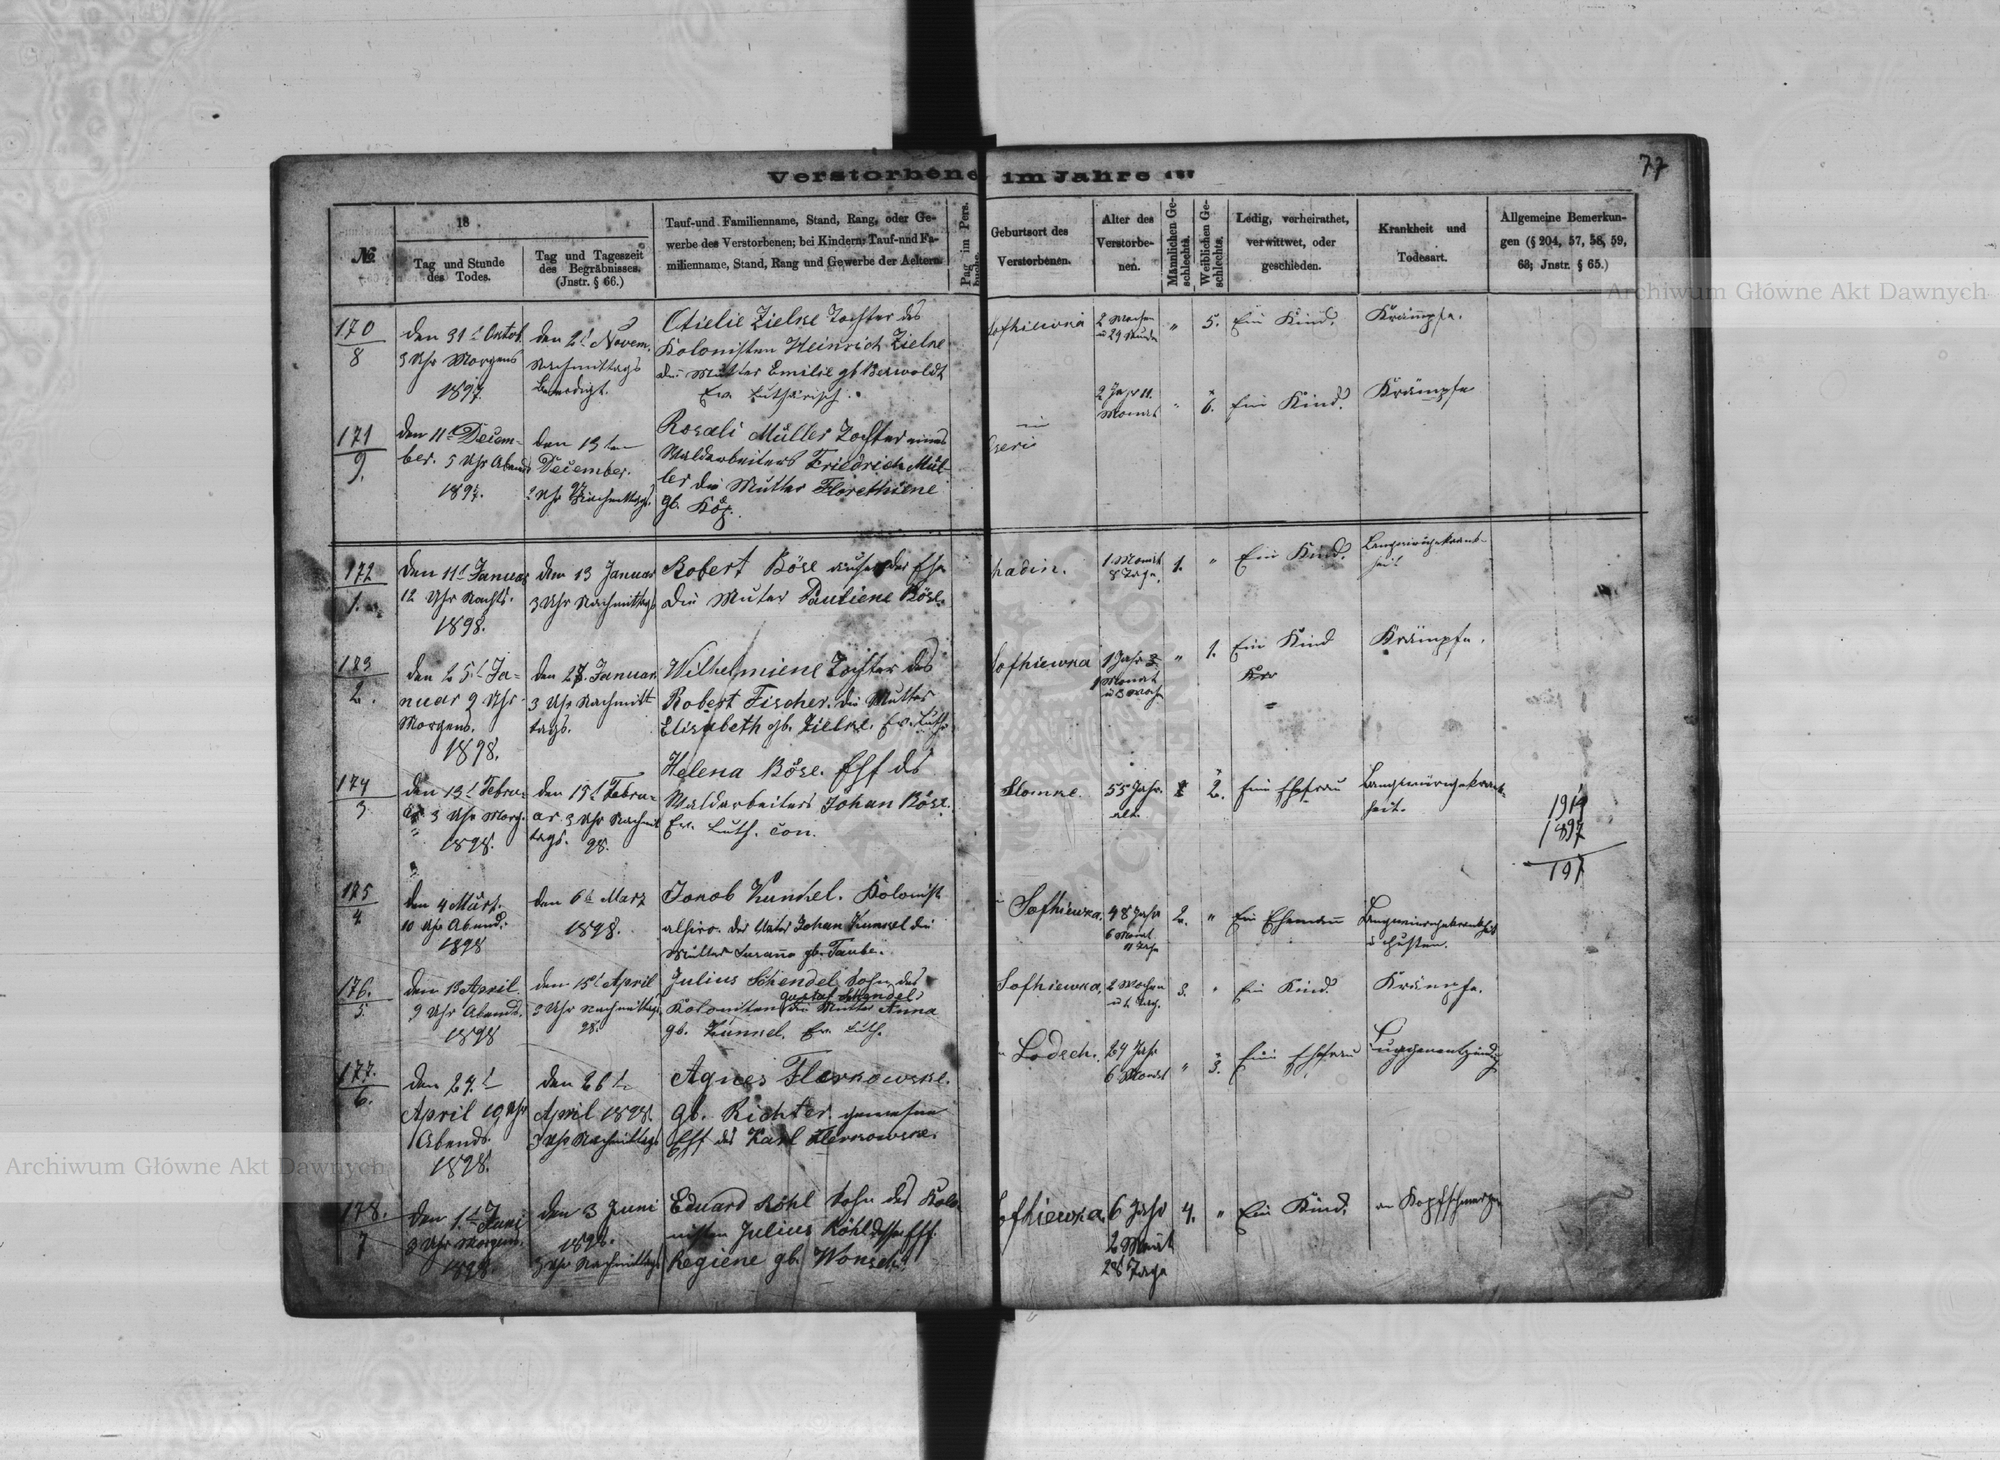 77
Verstorbene im Jahre 18
№
18 .
Tag und Stunde
des Todes.
Tag und Tageszeit
des Begräbnisses.
(Jnstr. § 66.)
Tauf-und Familienname, Stand, Rang, oder Ge-
werbe des Verstorbenen; bei Kindern: Tauf-und Fa-
milienname, Stand, Rang und Gewerbe der Aeltern.
Pag. im Pers.
buche.
Geburtsort des
Verstorbenen.
Alter des
Verstorbe-
nen.
Männlichen Ge-
schlechts.
Weiblichen Ge-
schlechts.
Ledig, verheirathet,
verwittwet, oder
geschieden.
Krankheit und
Todesart.
Allgemeine Bemerkun-
gen (§ 204, 57, 58, 59,
63; Jnstr. § 65.)
170
8
den 31t Oktob.
3 Uhr Morgens
1897.
den 2t Novem.
Nachmittags
Beerdigt.
Otielie Zielke Tochter des
Kolonisten Heinrich Zielke
die Mutter Emilie gb Berwoldt
Ev. Lutharisch.
Sofhiewka
2 Wochen
u 29 Stunde
"
5.
Ein Kind.
Krämpfe.
171
9.
den 11t Decem-
ber. 5 Uhr Abends
1897.
den 13ten
December.
97
2 Uhr Nachmittags.
Rosali Müller Tochter eines
Waldarbeiters Friedrich Mül-
ler die Mutter Florethiene
gb.
2 Jahr 11.
Monat
"
6.
Ein Kind.
Krämpfe
172
1.
den 11t Januar
12 Uhr Nachts.
1898.
den 13 Januar
3 Uhr Nachmittags
Robert Böse auser der Ehe
die Muter Pauliene Böse.
1. Monat
8 Tage.
1.
"
Ein Kind.
173
2.
den 25t Ja-
nuar 9 Uhr
Morgens.
1898.
den 27. Januar
3 Uhr Nachmit
tags.
Wilhelmiene Tochter des
Robert Fischer. die Mutter
Elisabeth gb. Zielke. Ev. Luth.
Sofhiewka
1 Jahr
1 Monat
"
1.
Ein Kind
Krämpfe.
174
3.
den 13t Febru-
ar 3 Uhr Morg.
1898.
den 15t Febru-
ar. 3 Uhr Nachmit
tags. 98.
Helena Böse. Ehf des
Waldarbeiters Johan Böse.
Ev. Luth. Con.
55 Jahr.
alt.
2.
Eine Ehefrau
1919
1897
197
175
4
den 4 März.
10 Uhr Abend.
1898
den 6t März
1898.
Kunkel. Kolonist
der Vater Johan Kunkel die
Mutter Susana gb. Taube.
Sofhiewka.
48 Jahr
6 Monat
11 Tage
2.
"
Ein Ehemann
u Husten.
176.
5.
den 13 April
9 Uhr Abends.
1898
den 15t April
3 Uhr Nachmittags
98.
Julius Schendel Sohn des
Gustaf Schendel
Kolonisten die Mutter Anna
gb. Kunkel. Ev. Luth.
Sofhiewka.
2 Wochen
3.
"
Ein Kind.
Krämpfe.
177.
6.
den 24.t
April 10 Uhr
Abends.
1898.
den 26t
April 1898.
3 Uhr Nachmittags
Agnes Flerkowske.
gb. Richter. gewesene
Ehf des Karl Flerkowske.
Lodsch.
24 Jahr
6 Monat
"
3.
Eine Ehefrau
Lungenentzündung
178.
7
den 1.t Juni
8 Uhr Morgens.
1898.
den 3 Juni
1898.
3 Uhr Nachmittags
Eduard Röhl Sohn des Kolo-
nisten Julius Röhl
Regiene gb. Wonsch
Sofhiewka.
6 Jahr
2 Monat
28 Tage
4.
"
Ein Kind.
an Kopfschmerzen
Archiwum Główne Akt Dawnych
Archiwum Główne Akt Dawnych